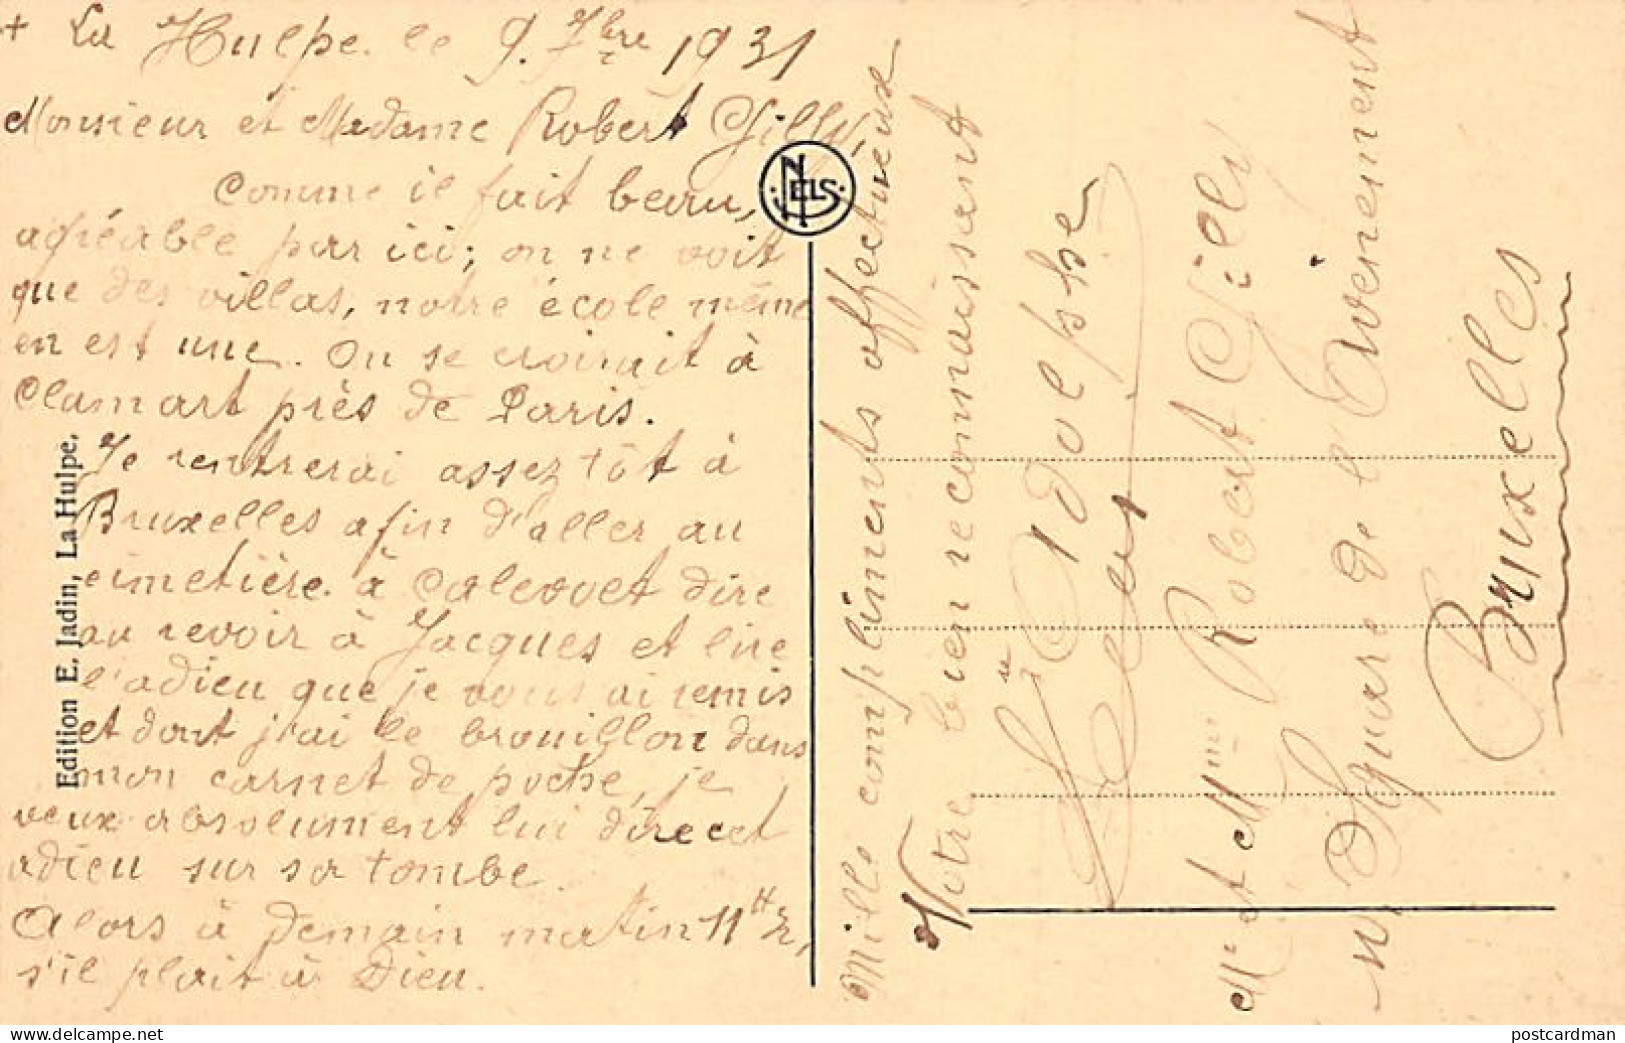 + La Hulpe. le 9. 7bre 1931
Monsieur et Madame Robert Gilly,
Comme il fait beau,
agréable par ici; on ne voit
que des villas, notre école même
en est une. On se croirait à
Clamart près de Paris.
Je rentrerai assez tôt à
Bruxelles afin d'aller au
cimetière à Calevoet dire
au revoir à Jacques et lire
l'adieu que je vous ai remis
et dont j'ai le brouillon dans
mon carnet de poche, je
veux absolument lui dire cet
adieu sur sa tombe.
Alors à demain matin 11 h ½,
s'il plait à Dieu.
Edition E. Jadin, La Hulpe.
NELS
Mille compliments affectueux
Votre bien reconnaissant
Fre Adolphe
Mr et Mme Robert Gilly
Square de l'Avenement
Bruxelles
delcampe.net
postcardman